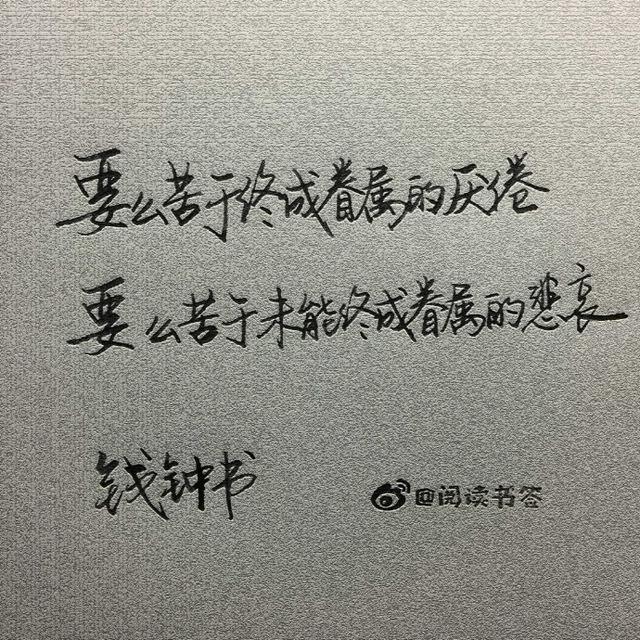 要么苦于终成眷属的厌倦
要么苦于未能终成眷属的悲哀
钱钟书
@阅读书签